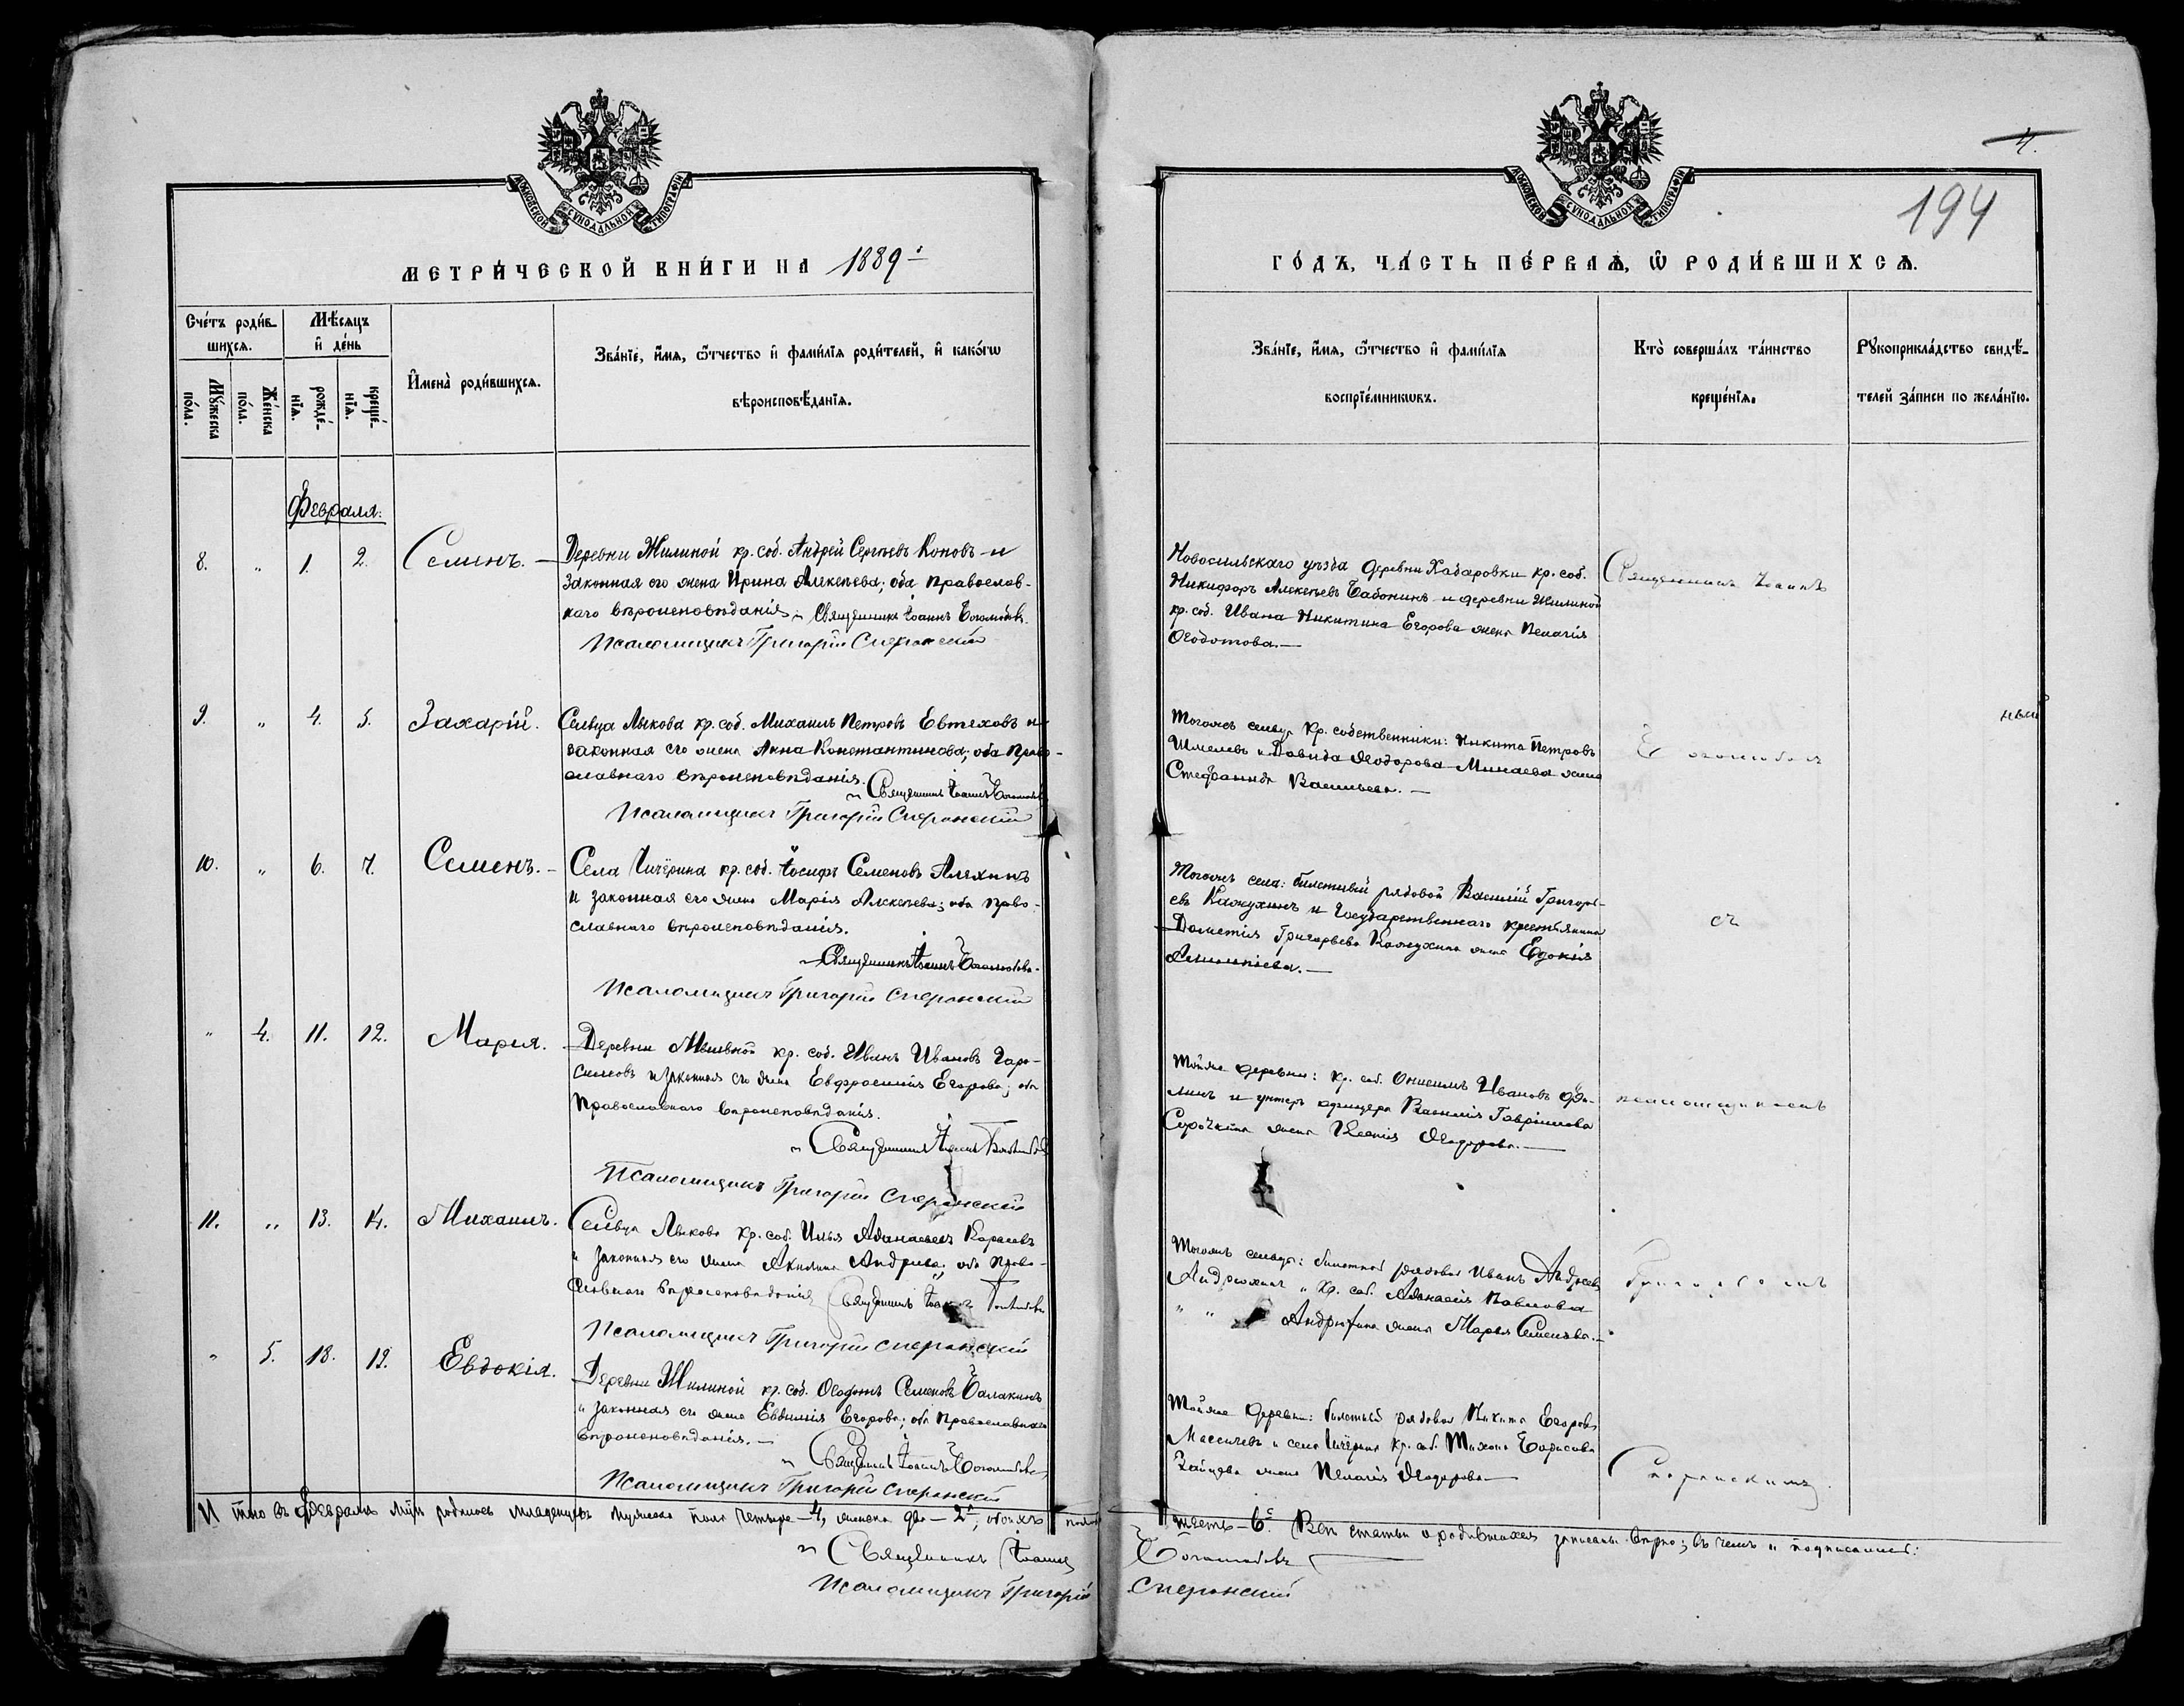 МОСКОВСКОЙ СѴНОДАЛЬНОЙ ТИПОГРАФІИ
МЕТРИ́ЧЕСКОЙ КНИ́ГИ НА 1889й
Сче́тъ роди́в-
шихсѧ.
Мѣ́сѧцъ
и҆ де́нь
Мꙋ́жеска по́ла.
Же́нска по́ла.
рожде́-
нїѧ.
креще́-
нїѧ.
И҆мена̀ роди́вшихсѧ.
Зва́нїе, и҆́мѧ, ѻ҆́тчество и҆ фами́лїѧ роди́телей, и҆ како́гѡ
вѣроисповѣ́данїѧ.
Февраля:
8. " 1. 2. Семенъ. — Деревни Жилиной кр. соб. Андрей Сергѣевъ Коновъ и
законная его жена Ирина Алексѣева; оба православ-
наго вѣроисповѣданія. Священникъ Іоаннъ Боголюбовъ.
Псаломщикъ Григорій Сперанскій
9. " 4. 5. Захарій. Сельца Лыкова кр. соб. Михаилъ Петровъ Евтеховъ и
законная его жена Анна Константинова; оба право-
славнаго вѣроисповѣданія.
Священникъ Іоаннъ Боголюбовъ
Псаломщикъ Григорій Сперанскій
10. " 6. 7. Семенъ. — Села Чичёрина кр. соб. Іосифъ Семеновъ Алехинъ
и законная его жена Марія Алексѣева; оба право-
славнаго вѣроисповѣданія.
Священникъ Іоаннъ Боголюбовъ.
Псаломщикъ Григорій Сперанскій
" 4. 11. 12. Марія. Деревни кр. соб. Иванъ Ивановъ Гара-
симовъ и законная его жена Евфросинія Егорова; оба
Православнаго вѣроисповѣданія.
Священникъ Іоаннъ Боголюбовъ
Псаломщикъ Григорій Сперанскій
11. " 13. 14. Михаилъ. Сельца Лыкова кр. соб. Илья Афанасьевъ Карасевъ
и законная его жена Акилина Андреева; оба право-
славнаго вѣроисповѣданія Священникъ Іоаннъ Боголюбовъ
Псаломщикъ Григорій Сперанскій
" 5. 18. 19. Евдокія. Деревни Жилиной кр. соб. Ѳедотъ Семеновъ Балакинъ
и законная его жена Евѳимія Егорова; оба православнаго
вѣроисповѣданія. —
Священникъ Іоаннъ Боголюбовъ
Псаломщикъ Григорій Сперанскій
И того въ Февралѣ мцѣ родилось младенцевъ мужеска пола четыре — 4, женска два — 2, обоихъ пола
Священникъ Іоаннъ
Псаломщикъ Григорій
4.
194
МОСКОВСКОЙ СѴНОДАЛЬНОЙ ТИПОГРАФІИ
ГО́ДЪ, ЧА́СТЬ ПЕ́РВАѦ, Ѡ҆ РОДИ́ВШИХСѦ.
Зва́нїе, и҆́мѧ, ѻ҆́тчество и҆ фами́лїѧ
воспрїе́мникѡвъ.
Кто̀ соверша́лъ та́инство
креще́нїѧ.
Рꙋкоприкла́дство свидѣ́-
телей за́писи по жела́нїю.
Новосильскаго уѣзда деревни Хабаровки кр. соб.
Никифоръ Алексѣевъ Бабонинъ и деревни Жилиной
кр. соб. Ивана Никитина Егорова жена Пелагія
Ѳедотова. —
Священникъ Іоаннъ
Тогоже сельца кр. собственники: Никита Петровъ
Шмелевъ и Давида Ѳедорова Минаева жена
Стефанида Васильева. —
Боголюбовъ
Тогожъ села: билетный рядовой Василій Григорь-
евъ Кажухинъ и Государственнаго крестьянина
Дометія Григорьева Кажухина жена Евдокія
съ
Тойже деревни: кр. соб. Онисимъ Ивановъ
и унтеръ офицера Василія Гаврілова
Сорочкина жена Ксенія Ѳедорова. —
псаломщикомъ
Тогожъ сельца: билетной рядовой Иванъ Андреевъ
Андрюхинъ и кр. соб. Афанасія Павлова
" " Андрюхина жена Марья Семенова. —
Григоріемъ
Тойже деревни: билетный рядовой Никита Егоровъ
и села Чичёрина кр. соб. Тихона Борисова
Зайцева жена Пелагія Ѳедорова —
Сперанскимъ.
шесть — 6. Всѣ статьи о родившихся записаны вѣрно; въ чемъ и подписались:
Боголюбовъ
Сперанскій